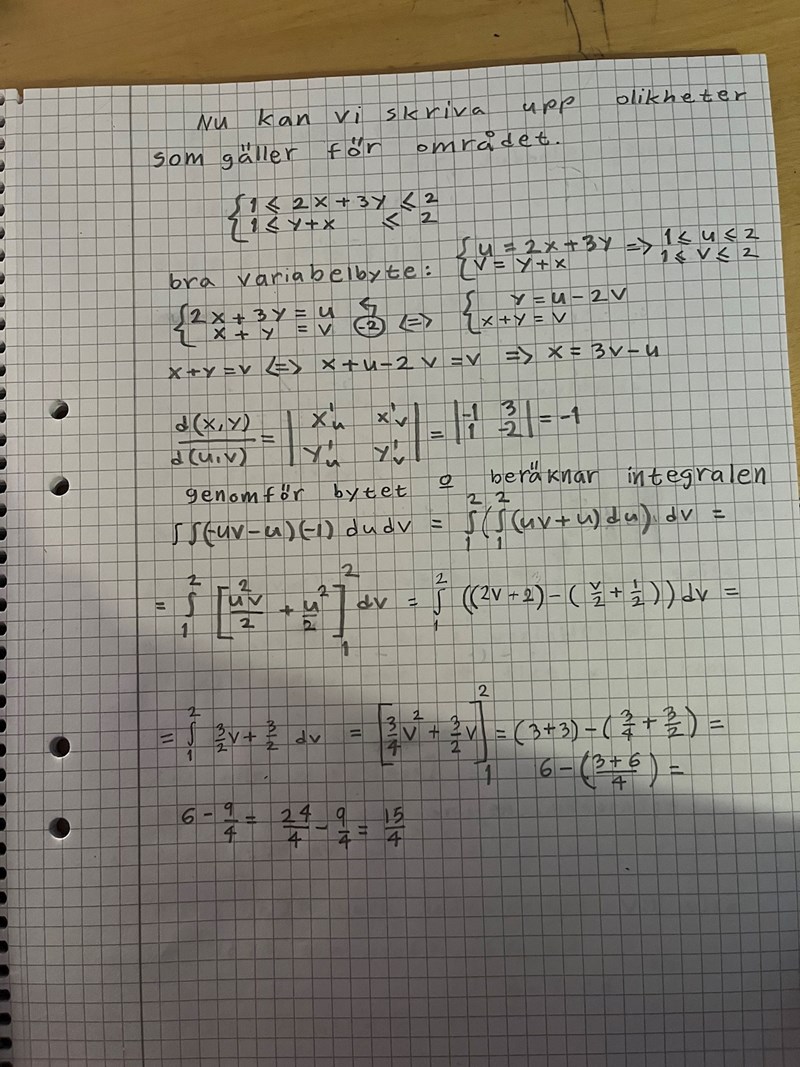 Nu kan vi skriva upp olikheter
som gäller för området.
{1 ≤ 2x + 3y ≤ 2
{1 ≤ y+x ≤ 2
bra variabelbyte: {u = 2x+3y => 1 ≤ u ≤ 2
{v = y+x 1 ≤ v ≤ 2
{2x + 3y = u ↰ <=> { y = u - 2v
{x + y = v (-2) {x+y = v
x+y = v <=> x+u-2v = v => x = 3v-u
d(x,y)/d(u,v) = |x'u x'v; y'u y'v| = |-1 3; 1 -2| = -1
genomför bytet o beräknar integralen
∫∫(-uv-u)(-1) du dv = ∫₁²(∫₁²(uv+u)du) dv =
= ∫₁² [u²v/2 + u²/2]₁² dv = ∫₁² ((2v+2)-(v/2+1/2))dv =
= ∫₁² 3/2v+3/2 dv = [3/4v²+3/2v]₁² = (3+3)-(3/4+3/2) =
6-(3+6/4) =
6-9/4 = 24/4-9/4 = 15/4